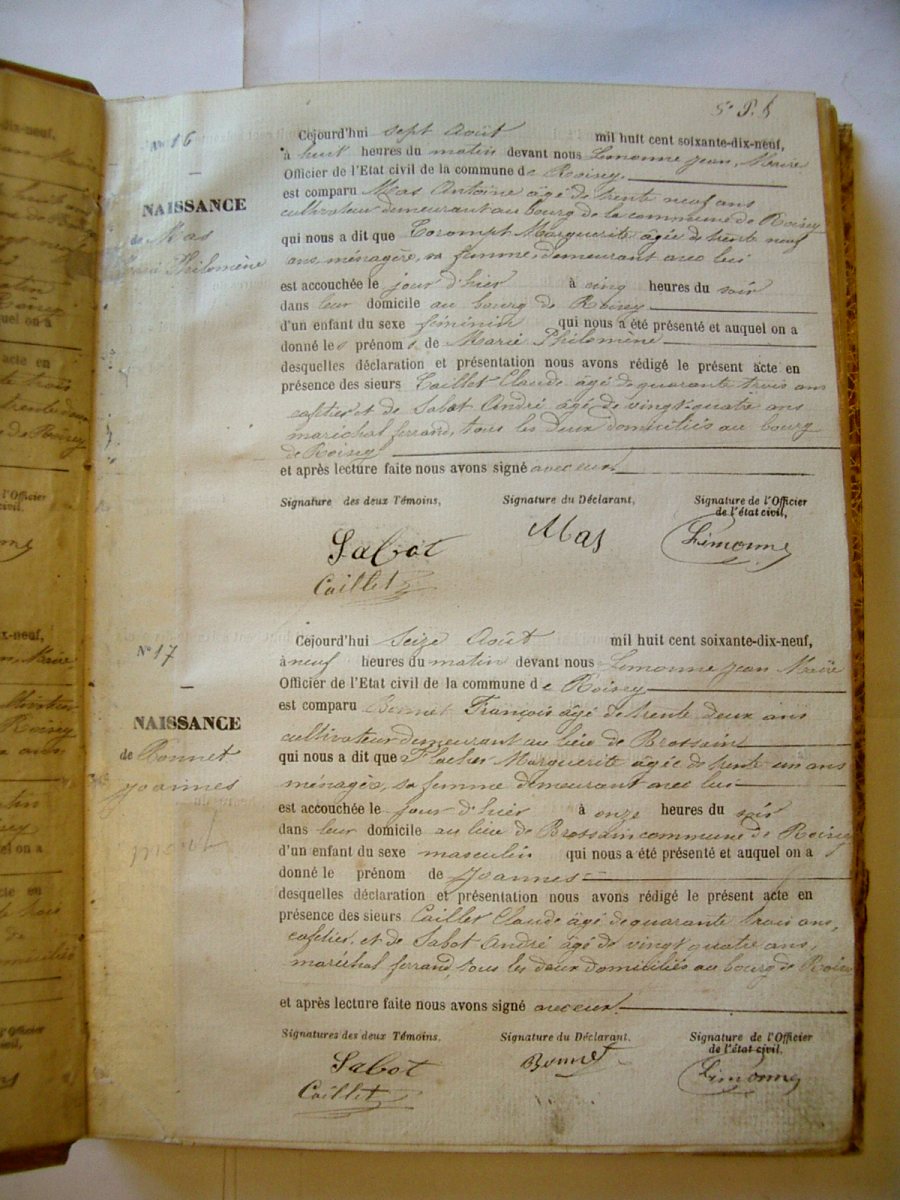 5e P. 5
No 16
NAISSANCE
de Mas
Marie Philomène
Cejourd'hui sept Août mil huit cent soixante-dix-neuf,
à huit heures du matin devant nous Limonne Jean, Maire
Officier de l'Etat civil de la commune de Roisey.
est comparu Mas Antoine âgé de trente neuf ans
cultivateur demeurant au bourg de la commune de Roisey
qui nous a dit que Corompt Marguerite âgée de trente neuf
ans ménagère, sa femme, demeurant avec lui
est accouchée le jour d'hier à cinq heures du soir
dans leur domicile au bourg de Roisey
d'un enfant du sexe féminin qui nous a été présenté et auquel on a
donné les prénoms de Marie Philomène
desquelles déclaration et présentation nous avons rédigé le présent acte en
présence des sieurs Caillet Claude âgé de quarante trois ans
cafetier et de Sabot André âgé de vingt-quatre ans
maréchal ferrand, tous les deux domiciliés au bourg
de Roisey
et après lecture faite nous avons signé avec eux
Signature des deux Témoins, Signature du Déclarant, Signature de l'Officier
de l'état civil,
Sabot Mas Limonne
Caillet
No 17
NAISSANCE
de Bonnet
Joannes
mort
Cejourd'hui seize Août mil huit cent soixante-dix-neuf,
à neuf heures du matin devant nous Limonne Jean Maire
Officier de l'Etat civil de la commune de Roisey
est comparu Bonnet François âgé de trente deux ans
cultivateur demeurant au lieu de Brossain
qui nous a dit que Flacher Marguerite âgée de trente un ans
ménagère, sa femme demeurant avec lui
est accouchée le jour d'hier à onze heures du soir
dans leur domicile au lieu de Brossain commune de Roisey
d'un enfant du sexe masculin qui nous a été présenté et auquel on a
donné le prénom de Joannes
desquelles déclaration et présentation nous avons rédigé le présent acte en
présence des sieurs Caillet Claude âgé de quarante trois ans,
cafetier, et de Sabot André âgé de vingt quatre ans,
maréchal ferrand, tous les deux domiciliés au bourg de Roisey
et après lecture faite nous avons signé avec eux
Signatures des deux Témoins. Signature du Déclarant. Signature de l'Officier
de l'état civil.
Sabot Bonnet Limonne
Caillet